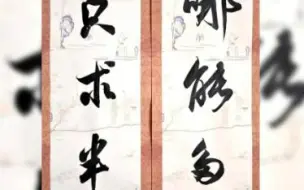 哪能多
只求半